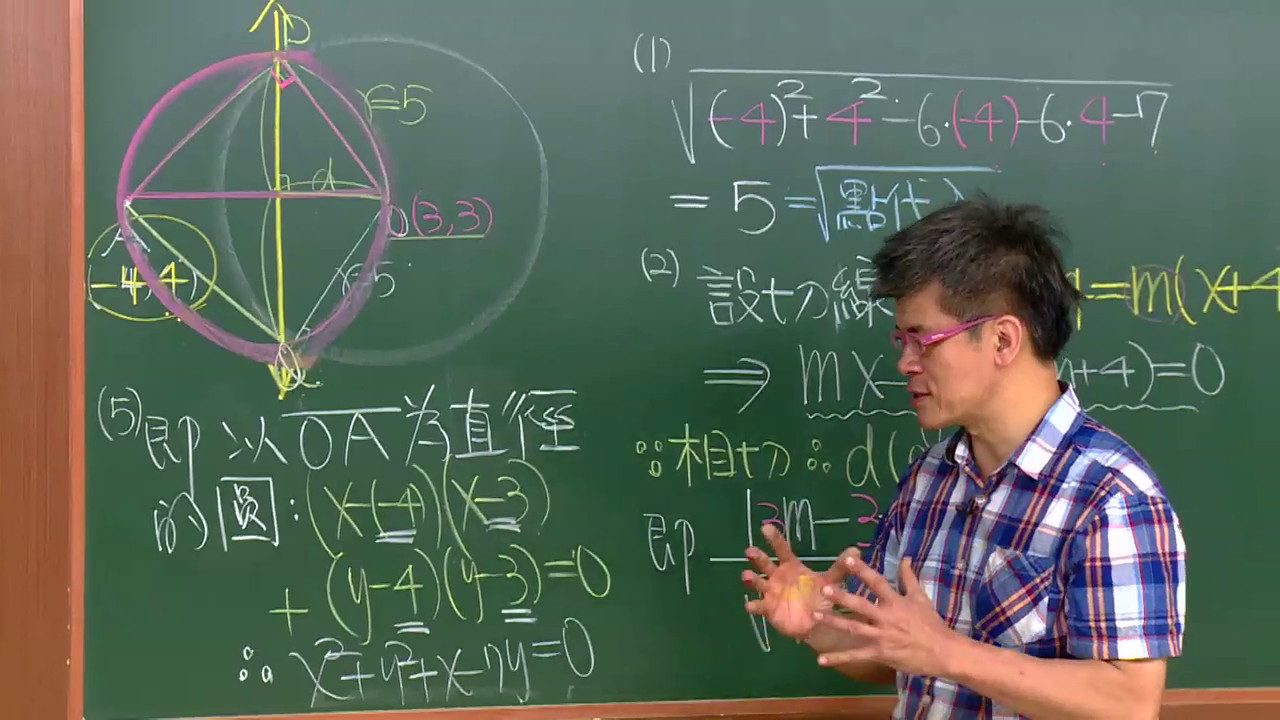 P
r=5
d
O(3,3)
A
(-4,4)
r=5
Q
(5) 即以OA為直徑
的圓:(x-(-4))(x-3)
+(y-4)(y-3)=0
∴ x²+y²+x-7y=0
(1)
√(-4)²+4²-6·(-4)-6·4-7
=5=√點代入
(2) 設切線 =m(x+4
⇒ mx- +4)=0
∵相切∴d(
即 |3m-3